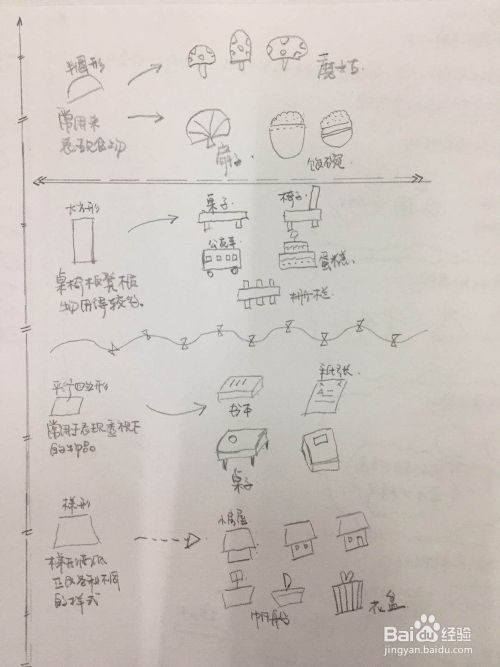 半圆形
蘑菇
常用来
表现食物
扇子
饭碗
长方形
桌子
椅子
公交车
蛋糕
桌椅板凳植
物用得较多。
栅栏
平行四边形
书本
纸张
常用于表现透视下
的物品
桌子
梯形
小房屋
梯形
不同
的样式
帆船
礼盒
Bai 百度经验
jingyan.baidu.com